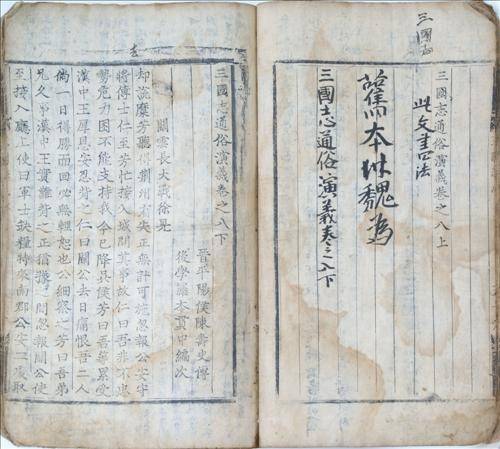 三國志
三國志通俗演義卷之八上
此文書
舊本 魏
三國志通俗演義卷之八下
三國志通俗演義卷之八下
晉平陽侯陳壽史傳
後學羅本貫中編次
關雲長大戰徐晃
却說糜芳聽得荊州有失正無計可施忽報公安守
將傅士仁至芳忙接入城問其事故仁曰吾非不忠
勢危力困不能支持我今已降吳侯芳曰吾等累受
漢中王厚恩安忍背之仁曰關公去日痛恨吾二人
倘一日得勝而回必無輕恕也公細察之芳曰吾弟
兄久事漢中王實難背之正猶豫之間忽報關公使
至接入廳上使曰軍士缺糧特來南郡公安二處取